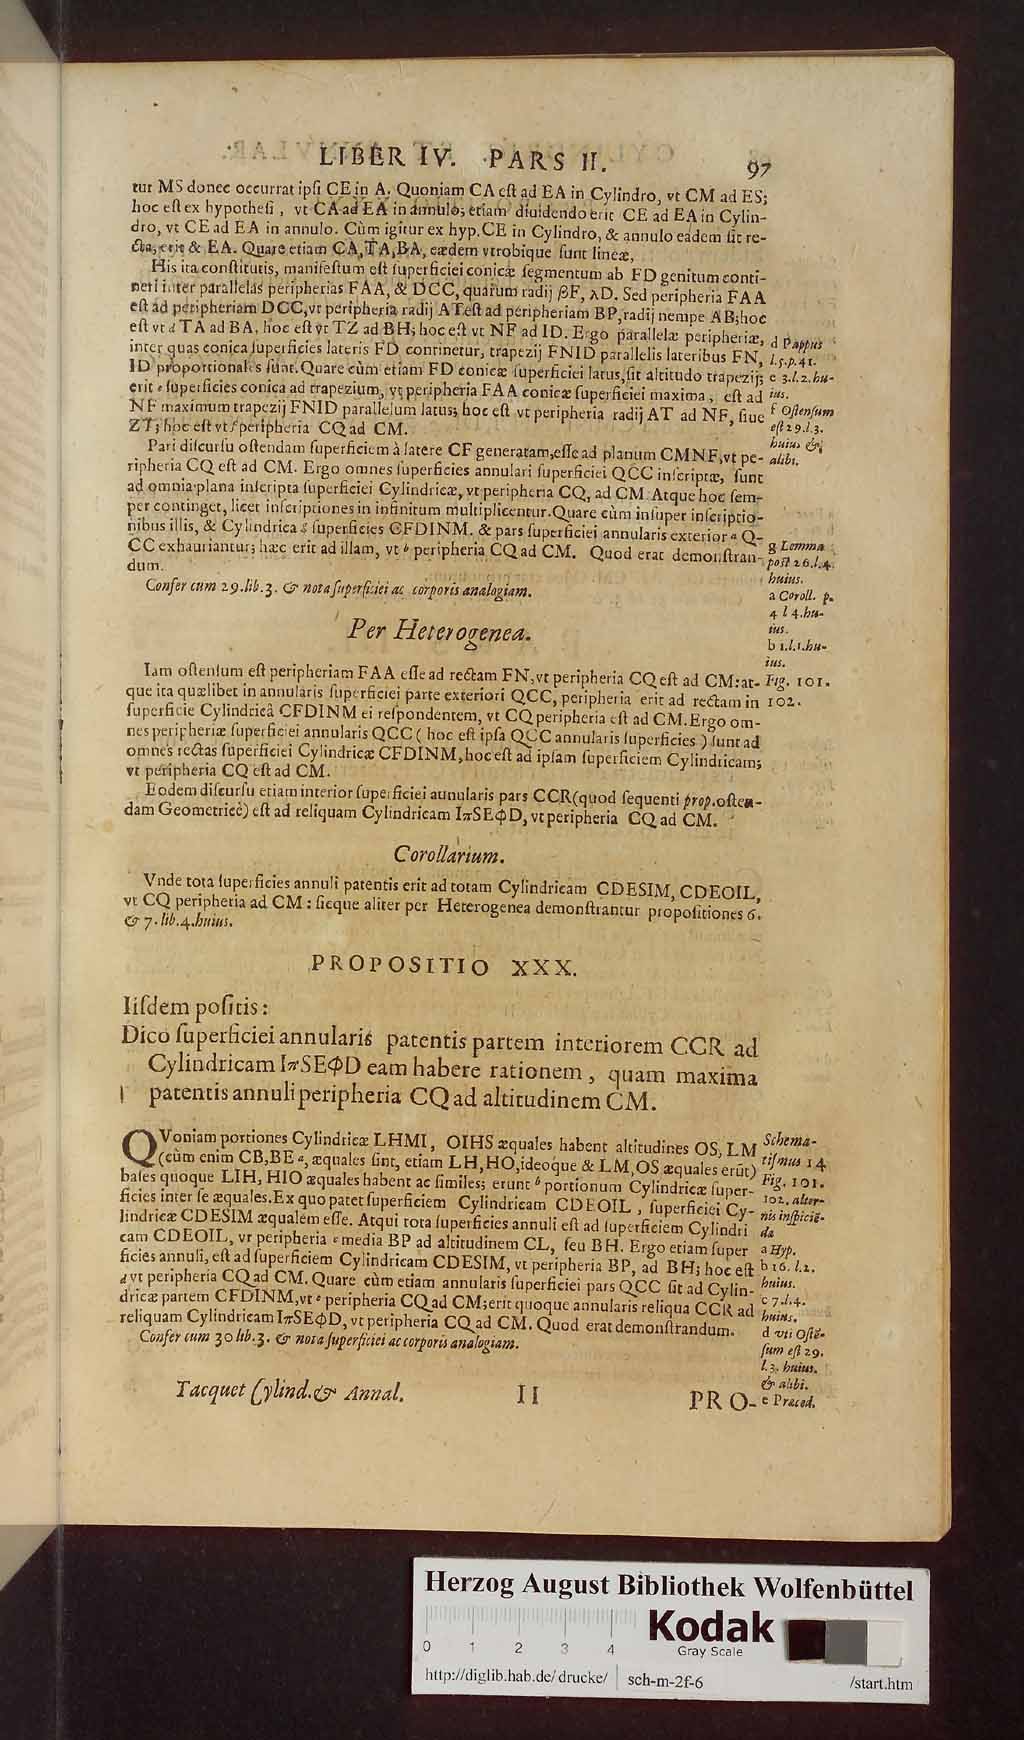 LIBER IV. PARS II. 97
tur MS donec occurrat ipſi CE in A. Quoniam CA eſt ad EA in Cylindro, vt CM ad ES;
hoc eſt ex hypotheſi, vt CA ad EA in annulo; etiam diuidendo erit CE ad EA in Cylin-
dro, vt CE ad EA in annulo. Cùm igitur ex hyp. CE in Cylindro, & annulo eadem ſit re-
cta, erit & EA. Quare etiam CA, TA, BA, eædem vtrobique ſunt lineæ,
His ita conſtitutis, manifeſtum eſt ſuperficiei conicæ ſegmentum ab FD genitum conti-
neri inter parallelas peripherias FAA, & DCC, quarum radij βF, λD. Sed peripheria FAA
eſt ad peripheriam DCC, vt peripheria radij AT eſt ad peripheriam BP, radij nempe AB; hoc
eſt vt d TA ad BA, hoc eſt vt TZ ad BH; hoc eſt vt NF ad ID. Ergo parallelæ peripheriæ,
inter quas conica ſuperficies lateris FD continetur, trapezij FNID parallelis lateribus FN,
ID proportionales ſunt. Quare cùm etiam FD conicæ ſuperficiei latus, ſit altitudo trapezij;
erit e ſuperficies conica ad trapezium, vt peripheria FAA conicæ ſuperficiei maxima, eſt ad
NF maximum trapezij FNID parallelum latus; hoc eſt vt peripheria radij AT ad NF, ſiue
ZT; hoc eſt vt f peripheria CQ ad CM.
d Pappus
l.5.p.41.
e 3.l.2.hu-
ius.
f Oſtenſum
eſt 29.l.3.
huius &
alibi.
Pari diſcurſu oſtendam ſuperficiem à latere CF generatam, eſſe ad planum CMNF, vt pe-
ripheria CQ eſt ad CM. Ergo omnes ſuperficies annulari ſuperficiei QCC inſcriptæ, ſunt
ad omnia plana inſcripta ſuperficiei Cylindricæ, vt peripheria CQ, ad CM. Atque hoc ſem-
per continget, licet inſcriptiones in infinitum multiplicentur. Quare cùm inſuper inſcriptio-
nibus illis, & Cylindrica g ſuperficies CFDINM. & pars ſuperficiei annularis exterior a Q-
CC exhauriantur; hæc erit ad illam, vt b peripheria CQ ad CM. Quod erat demonſtran-
dum.
Confer cum 29.lib.3. & nota ſuperficiei ac corporis analogiam.
g Lemma
poſt 26.l.4.
huius.
a Coroll. p.
4 l 4.hu-
ius.
b 1.l.1.hu-
ius.
Per Heterogenea.
Iam oſtenſum eſt peripheriam FAA eſſe ad rectam FN, vt peripheria CQ eſt ad CM: at-
que ita quælibet in annularis ſuperficiei parte exteriori QCC, peripheria erit ad rectam in
ſuperficie Cylindricâ CFDINM ei reſpondentem, vt CQ peripheria eſt ad CM. Ergo om-
nes peripheriæ ſuperficiei annularis QCC ( hoc eſt ipſa QCC annularis ſuperficies ) ſunt ad
omnes rectas ſuperficiei Cylindricæ CFDINM, hoc eſt ad ipſam ſuperficiem Cylindricam;
vt peripheria CQ eſt ad CM.
Fig. 101.
102.
Eodem diſcurſu etiam interior ſuperficiei annularis pars CCR (quod ſequenti prop. oſten-
dam Geometricè) eſt ad reliquam Cylindricam IπSEΦD, vt peripheria CQ ad CM.
Corollarium.
Vnde tota ſuperficies annuli patentis erit ad totam Cylindricam CDESIM, CDEOIL,
vt CQ peripheria ad CM: ſicque aliter per Heterogenea demonſtrantur propoſitiones 6.
& 7. lib.4.huius.
PROPOSITIO XXX.
Iiſdem poſitis:
Dico ſuperficiei annularis patentis partem interiorem CCR ad
Cylindricam IπSEΦD eam habere rationem, quam maxima
patentis annuli peripheria CQ ad altitudinem CM.
QVoniam portiones Cylindricæ LHMI, OIHS æquales habent altitudines OS, LM
(cùm enim CB, BE a, æquales ſint, etiam LH, HO, ideoque & LM, OS æquales erūt)
baſes quoque LIH, HIO æquales habent ac ſimiles; erunt b portionum Cylindricæ ſuper-
ficies inter ſe æquales. Ex quo patet ſuperficiem Cylindricam CDEOIL, ſuperficiei Cy-
lindricæ CDESIM æqualem eſſe. Atqui tota ſuperficies annuli eſt ad ſuperficiem Cylindri
cam CDEOIL, vt peripheria c media BP ad altitudinem CL, ſeu BH. Ergo etiam ſuper
ficies annuli, eſt ad ſuperficiem Cylindricam CDESIM, vt peripheria BP, ad BH; hoc eſt
d vt peripheria CQ ad CM. Quare cùm etiam annularis ſuperficiei pars QCC ſit ad Cylin-
dricæ partem CFDINM, vt e peripheria CQ ad CM; erit quoque annularis reliqua CCR ad
reliquam Cylindricam IπSEΦD, vt peripheria CQ ad CM. Quod erat demonſtrandum.
Confer cum 30 lib.3. & nota ſuperficiei ac corporis analogiam.
Schema-
tiſmus 14
Fig. 101.
102. alter-
nis inſpiciē-
da
a Hyp.
b 16. l.2.
huius.
c 7.l.4.
huius.
d vti Oſtē-
ſum eſt 29.
l.3. huius.
& alibi.
e Præced.
Tacquet Cylind. & Annal. II PRO-
Herzog August Bibliothek Wolfenbüttel
0 1 2 3 4
Kodak
Gray Scale
http://diglib.hab.de/drucke/ sch-m-2f-6 /start.htm